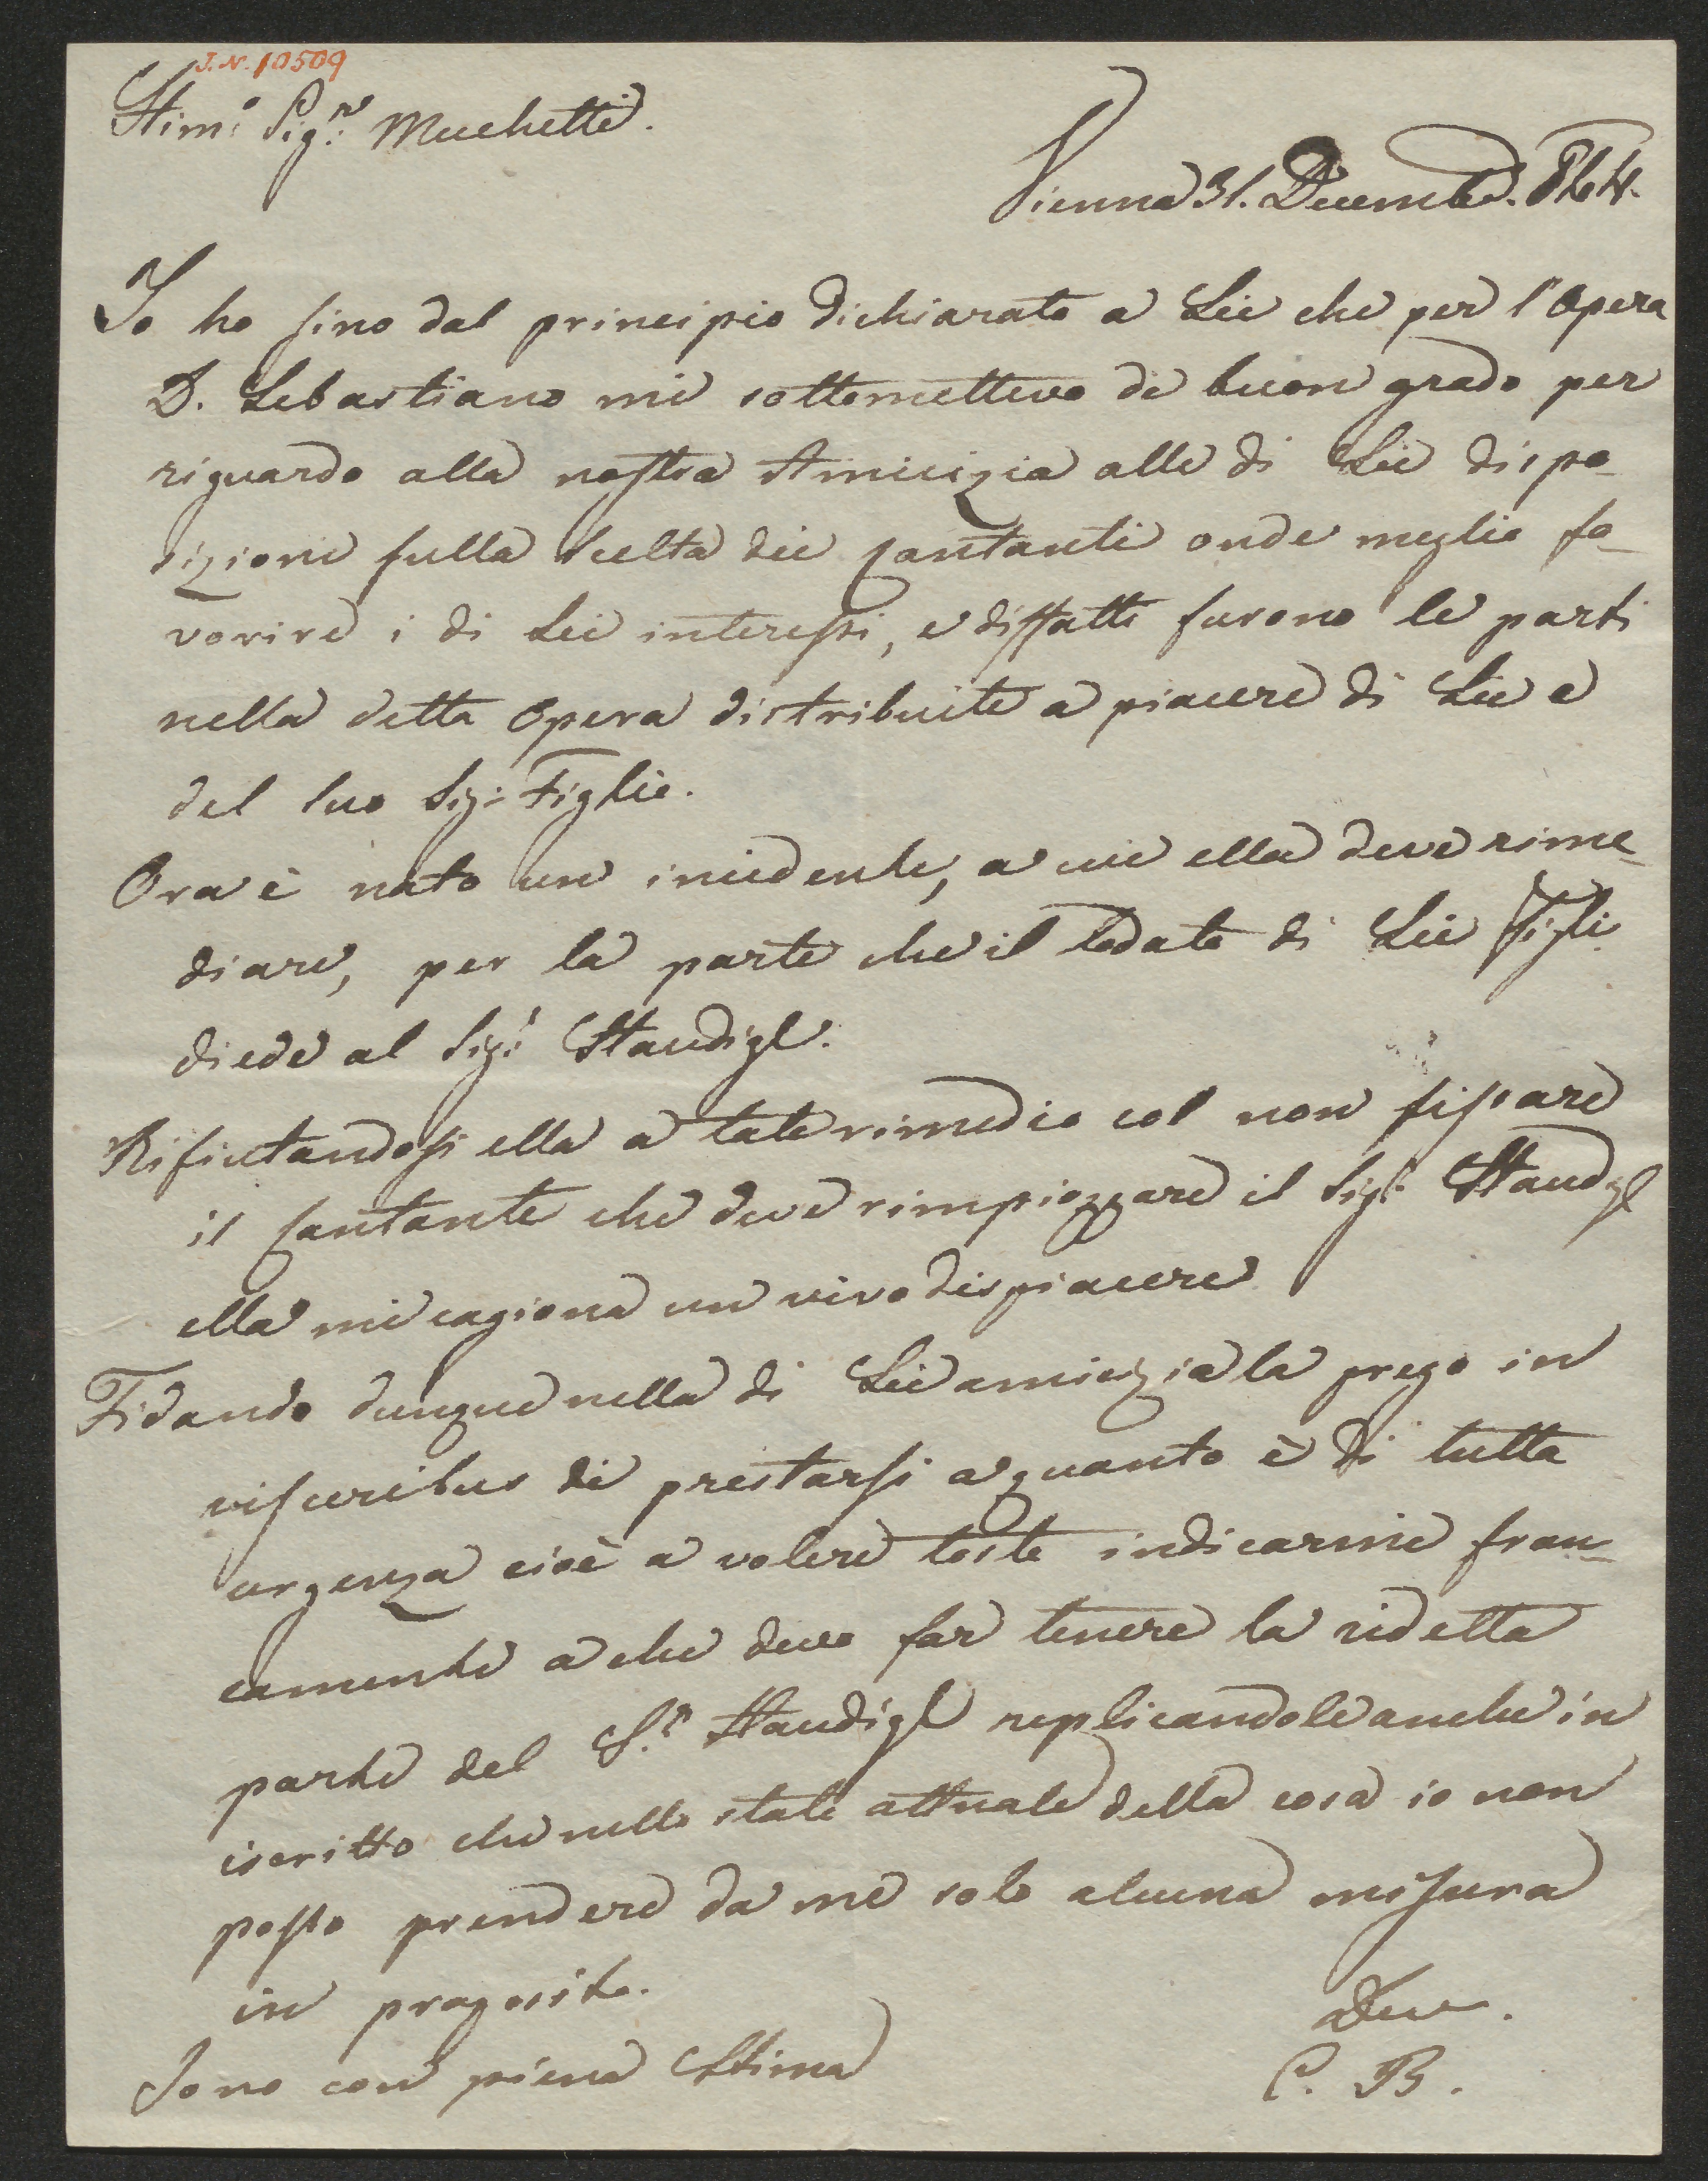 J.N. 10509
Stimo: Sigr: Mechetti.
Vienna 31. Decembr. 844.
Io ho sino dal principio dichiarato a Lei che per l'Opera
D. Sebastiano mi sottomettevo di buon grado per
riguardo alla nostra Amicizia alle di Lei dispo-
sizioni sulla scelta dei Cantanti onde meglio fa-
vorire i di Lei interessi, e diffatti furono le parti
nella detta Opera distribuite a piacere di Lei e
del suo Sig: Figlio.
Ora è nato un incidente, a cui ella deve rime-
diare, per la parte che il lodato di Lei Figlio
diede al Sigr: Staudigl.
Rifiutandosi ella a tale rimedio col non fissare
il Cantante che deve rimpiazzare il Sigr: Staudgl
ella mi cagiona un vivo dispiacere
Fidando dunque nella di Lei amicizia la prego in
visceribus di prestarsi a quanto è di tutta
urgenza cioè a volere tosto indicarmi fran-
camente a chi devo far tenere la ridetta
parte del S.r Staudigl replicandole anche in
iscritto che nello stato attuale della cosa io non
posso prendere da me solo alcuna misura
in proposito.
Sono con piena Stima
Dev.
C. B.